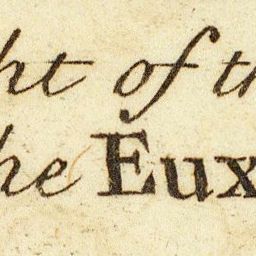 ht of th
he Eux